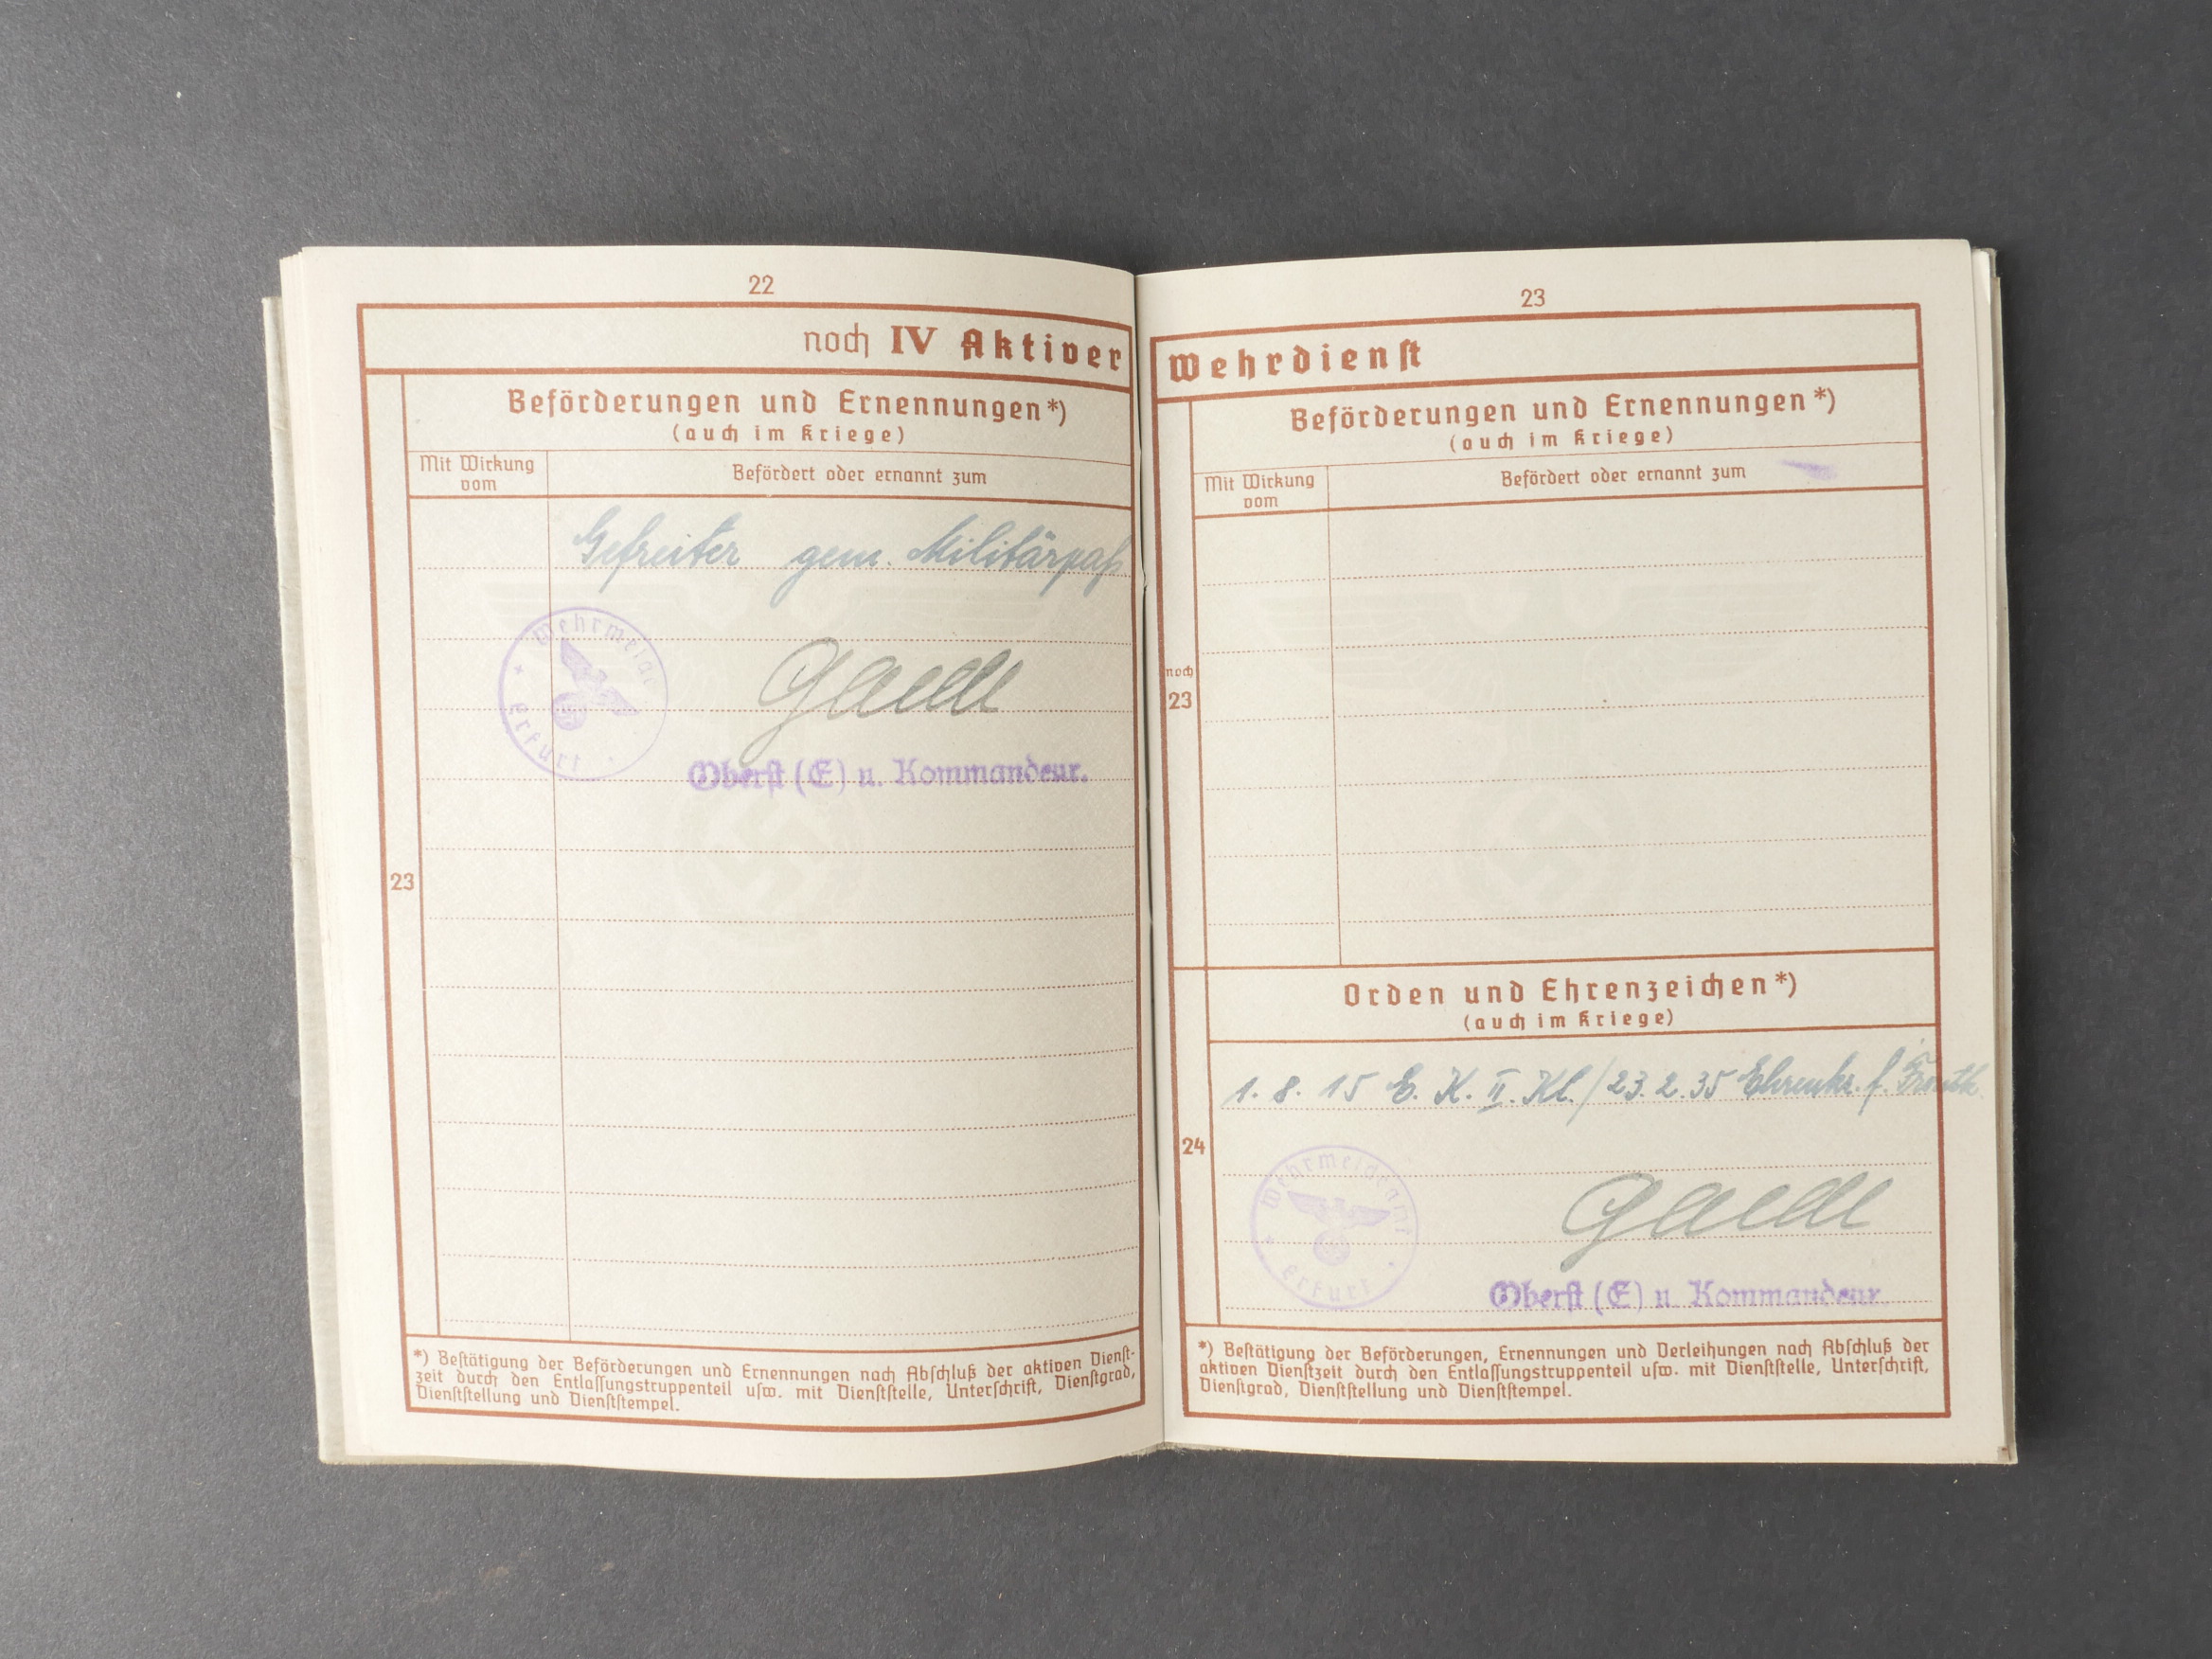 22
noch IV Aktiver
Beförderungen und Ernennungen*)
(auch im Kriege)
Mit Wirkung vom
Befördert oder ernannt zum
Gefreiter gem. Militärpaß
Wehrmeldeamt
Erfurt
Oberst (E) u. Kommandeur.
23
*) Bestätigung der Beförderungen und Ernennungen nach Abschluß der aktiven Dienst-
zeit durch den Entlassungstruppenteil usw. mit Dienststelle, Unterschrift, Dienstgrad,
Dienststellung und Dienststempel.
23
Wehrdienst
Beförderungen und Ernennungen*)
(auch im Kriege)
Mit Wirkung vom
Befördert oder ernannt zum
noch
23
Orden und Ehrenzeichen*)
(auch im Kriege)
1. 8. 15 E. K. II. Kl. / 23. 2. 35 Ehrenkr. f.
24
Wehrmeldeamt
Erfurt
Oberst (E) u. Kommandeur.
*) Bestätigung der Beförderungen, Ernennungen und Verleihungen nach Abschluß der
aktiven Dienstzeit durch den Entlassungstruppenteil usw. mit Dienststelle, Unterschrift,
Dienstgrad, Dienststellung und Dienststempel.